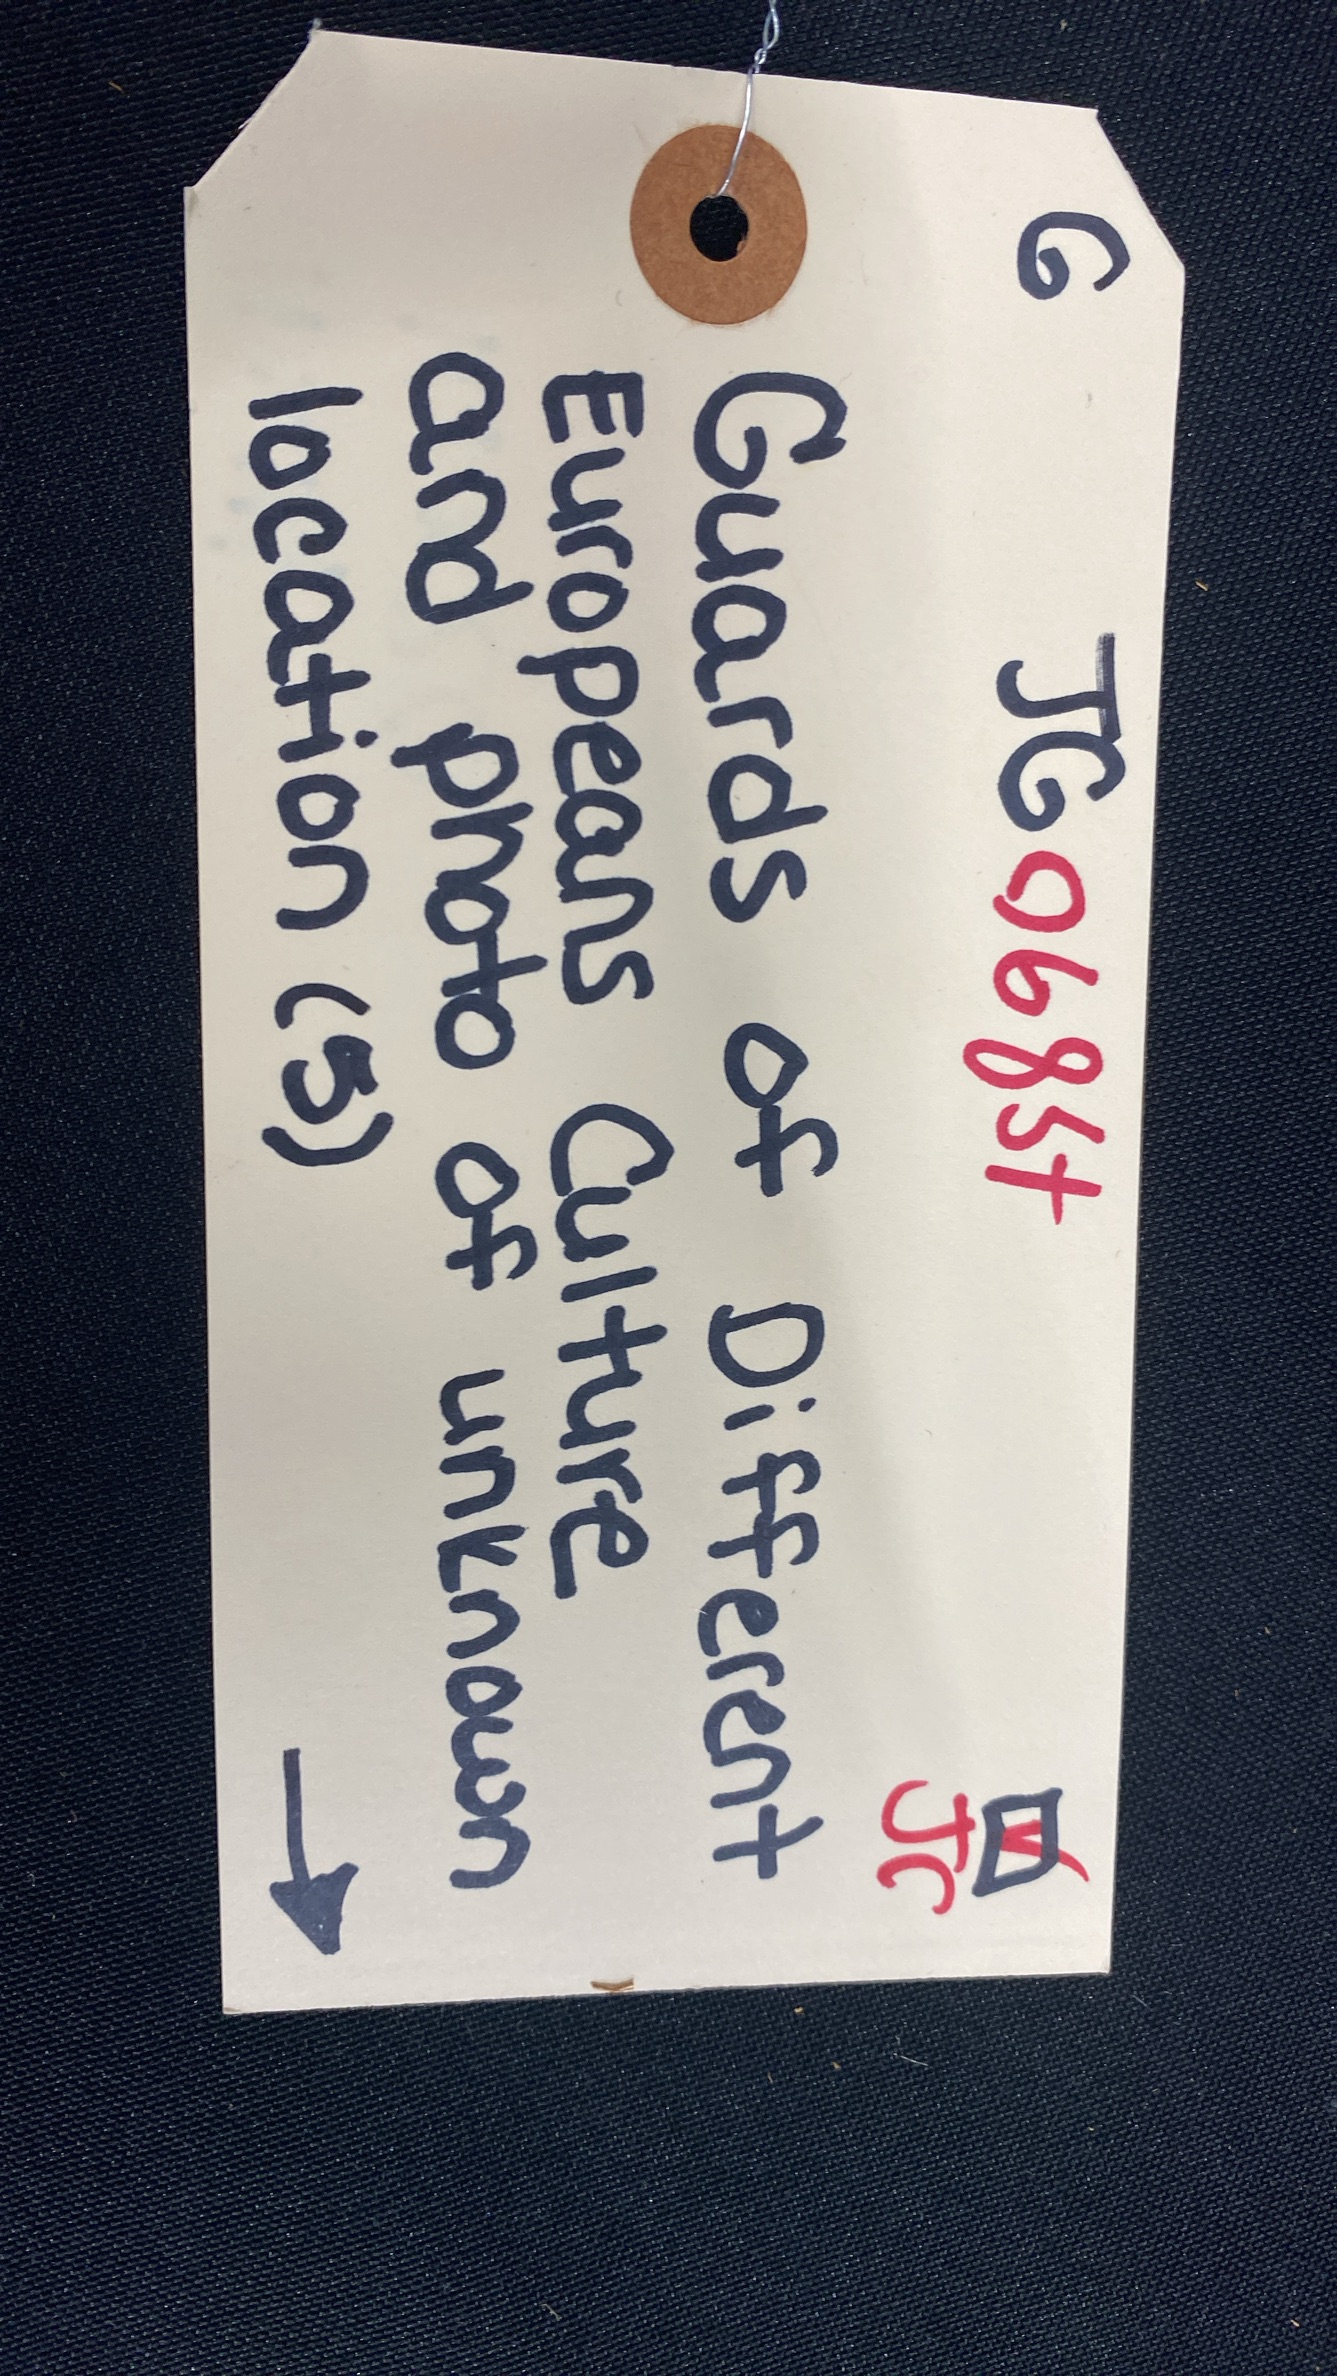 G
Guards of Different
Europeans Culture
and photo of unknown
location (5)
JC